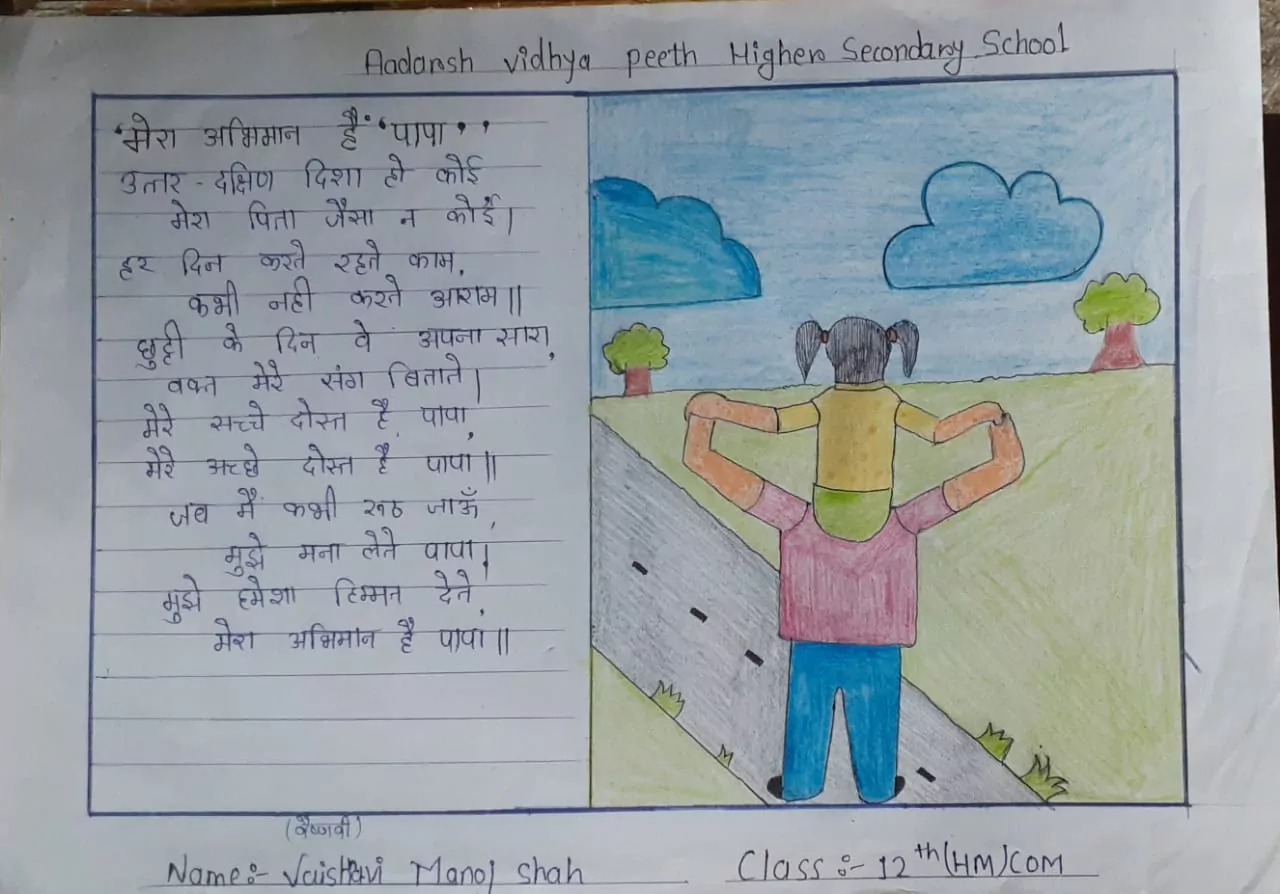 Aadarsh vidhya peeth Higher Secondary School
'मेरा अभिमान है' 'पापा''
उत्तर - दक्षिण दिशा हो कोई
मेरा पिता जैसा न कोई।
हर दिन करते रहते काम,
कभी नही करते आराम॥
छुट्टी के दिन वे अपना सारा,
वक्त मेरे संग बिताते।
मेरे सच्चे दोस्त है पापा,
मेरे अच्छे दोस्त है पापा॥
जब मैं कभी रूठ जाऊँ,
मुझे मना लेते पापा।
मुझे हमेशा हिम्मत देते,
मेरा अभिमान है पापा॥
(वैष्णवी)
Name:- Vaishnavi Manoj Shah
Class:- 12th (HM) COM